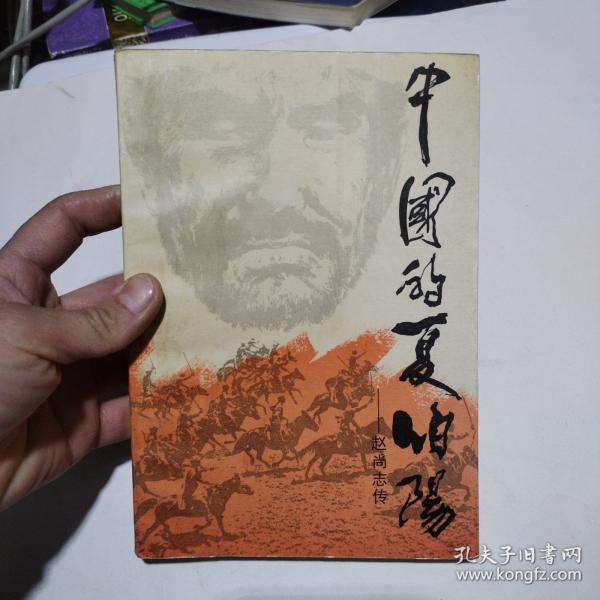 中國的夏伯陽
——赵尚志传
孔夫子旧书网
www.kongfz.com